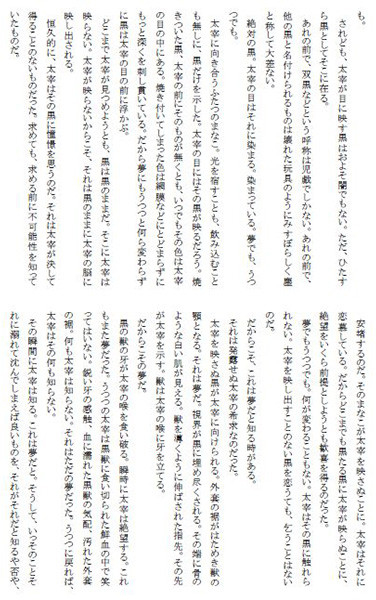 も。
されども、太宰が目に映す黒はおよそ闇でもない。ただ、ひたす
ら黒としてそこに在る。
あれの前で、双黒などという呼称は児戯でしかない。あれの前で、
他の黒と名付けられるものは壊れた玩具のようにみすぼらしく塵
と称して大差ない。
絶対の黒。太宰の目はそれに染まる。染まっている。夢でも、うつ
つでも。
太宰に向き合うふたつのまなこ。光を宿すことも、飲み込むこと
も無しに、黒だけを示した。太宰の目にはその黒が映るだろう。焼
きついた黒。太宰の前にそのものが無くとも、いつでもその色は太宰
の目の中にある。焼き付いてしまった色は網膜などにとどまらずに
もっと深くを刺し貫いている。だから夢にもうつつと何ら変わらず
に黒は太宰の目の前に浮かぶ。
どこまで太宰が見つめようとも、黒は黒のままだ。そこに太宰は
映らない。太宰が映らないからこそ、それは黒のままに太宰の脳に
映し出される。
恒久的に、太宰はその黒に憧憬を思うのだ。それは太宰が決して
得ることのないものだった。求めても、求める前に不可能性を知って
いたものだ。
安堵するのだ。そのまなこが太宰を映さぬことに。太宰はそれに
恋慕している。だからどこまでも黒たる黒に太宰が映らぬことに、
絶望をいくら前提としようとも歓喜を得るのだった。
夢でもうつつでも。何が変わることもない。太宰はその黒に触れら
れない。太宰を映し出すことのない黒を恋うても、乞うことはない
のだ。
だからこそ、これは夢だと知る時がある。
それは発露せぬ太宰の希求なのだった。
太宰を映さぬ黒が太宰に向けられる。外套の裾がはためき獣の
顎となる。それは夢だ。視界が黒に埋め尽くされる。その端に骨の
ような白い肌が見える。獣を導くように伸ばされた指先。その先
が太宰を示す。獣は太宰の喉に牙を立てる。
だからこその夢だ。
黒の獣の牙が太宰の喉を食い破る。瞬時に太宰は絶望する。これ
もまた夢だった。うつつの太宰は黒獣に食い切られた鮮血の中で笑
ってはいない。鋭い牙の感触、血に濡れた黒獣の気配、汚れた外套
の裾。何も太宰は知らない。それはただの夢だった。うつつに戻れば、
太宰はその何も知らない。
その瞬間に太宰は知る。これは夢だと。そうして、いっそのことそ
れに溺れて沈んでしまえば良いものを、それがそれだと知るや否や、